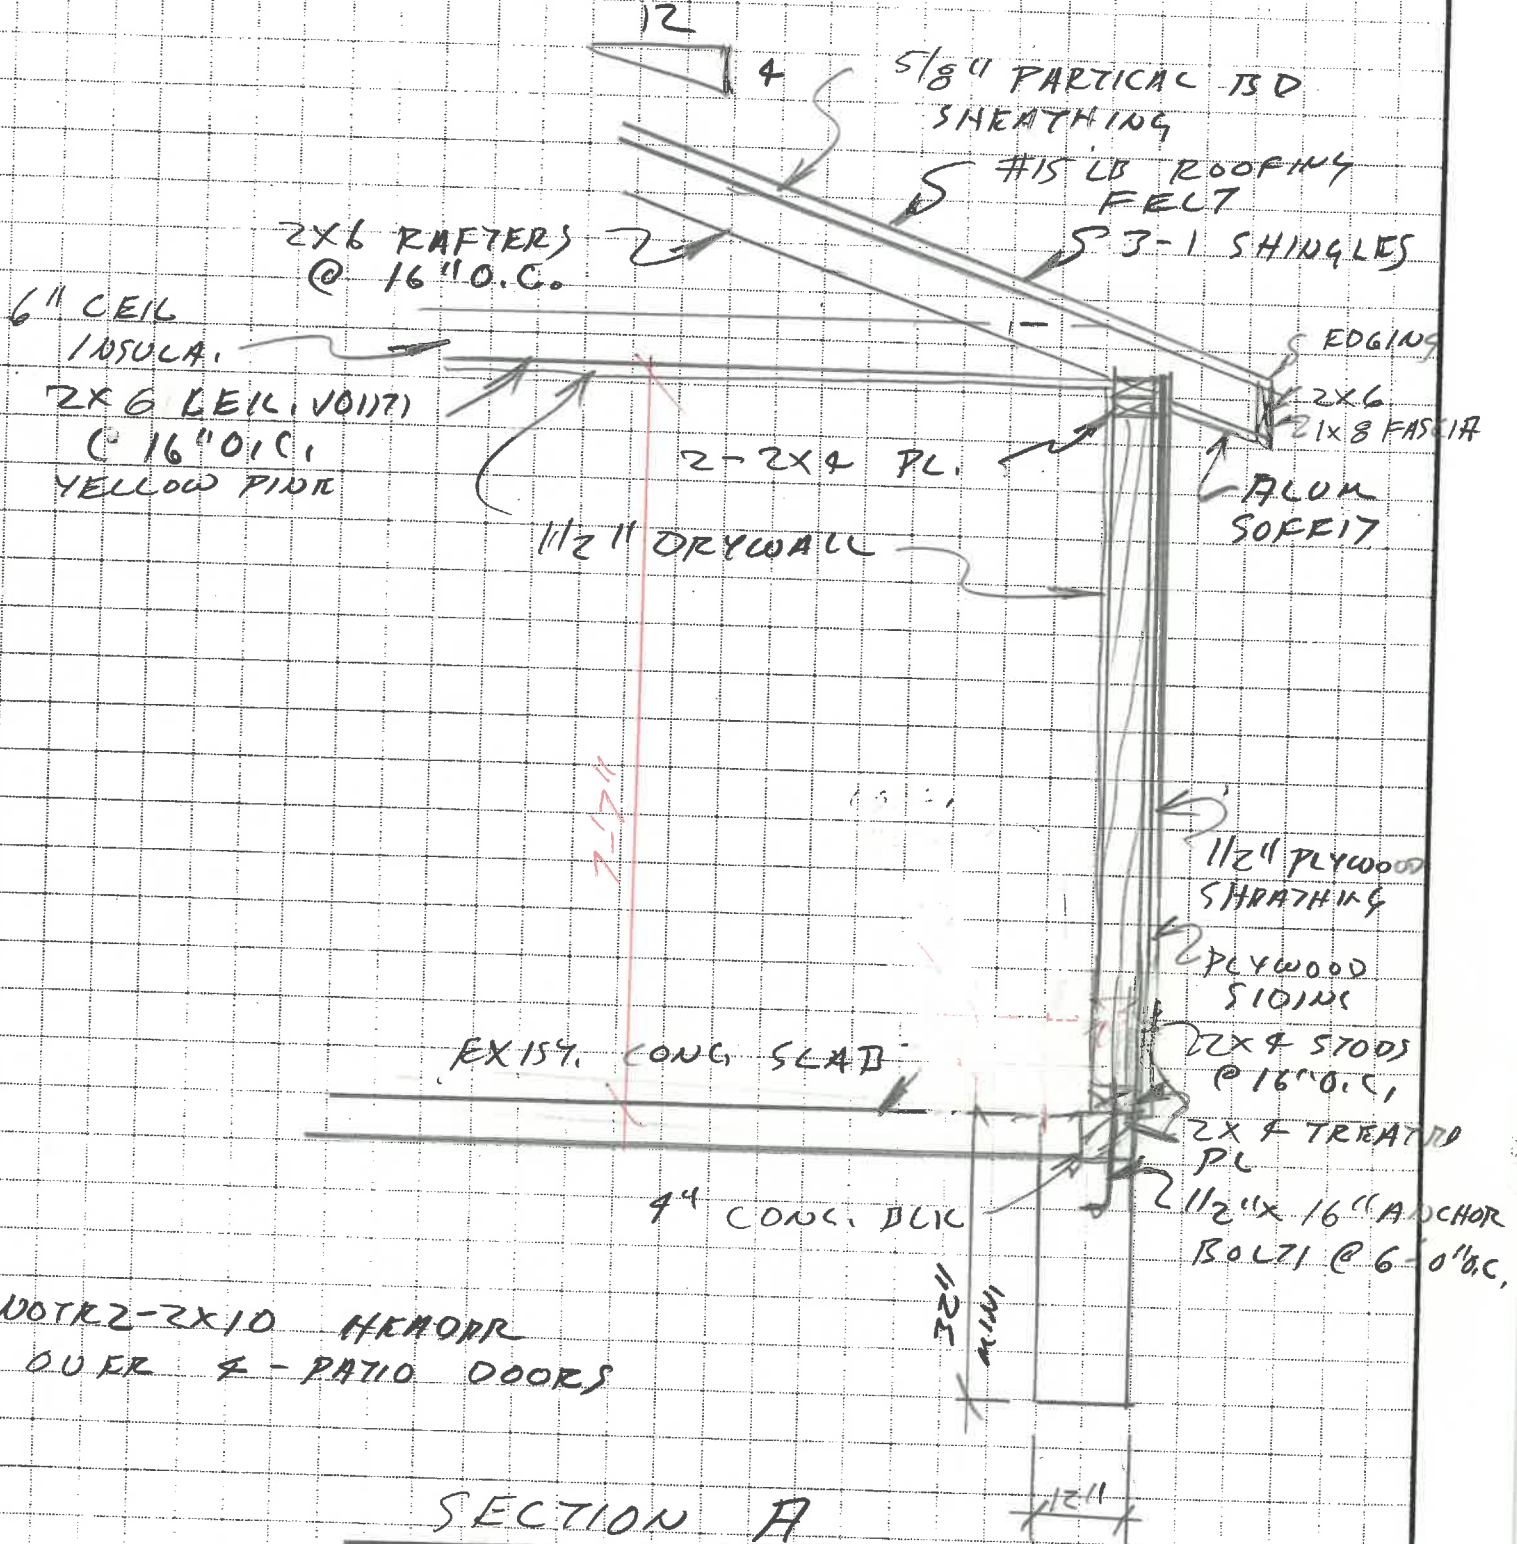 12
4
5/8" PARTICAL BD
SHEATHING
#15 LB ROOFING
FELT
3-1 SHINGLES
2X6 RAFTERS
@ 16" O.C.
6" CEIL
INSULA.
2X6 CEIL. JOISTS
@ 16" O.C.
YELLOW PINE
EDGING
2X6
1X8 FASCIA
2-2X4 PL.
ALUM
SOFFIT
1/2" DRYWALL
7'-7"
1/2" PLYWOOD
SHEATHING
PLYWOOD
SIDING
EXIST. CONC. SLAB
2X4 STUDS
@ 16" O.C.
2X4 TREATED
PL
4" CONC. BLK
1/2" X 16" ANCHOR
BOLTS @ 6'-0" O.C.
32"
MINI
NOTE 2-2X10 HEADER
OVER 4-PATIO DOORS
12"
SECTION A